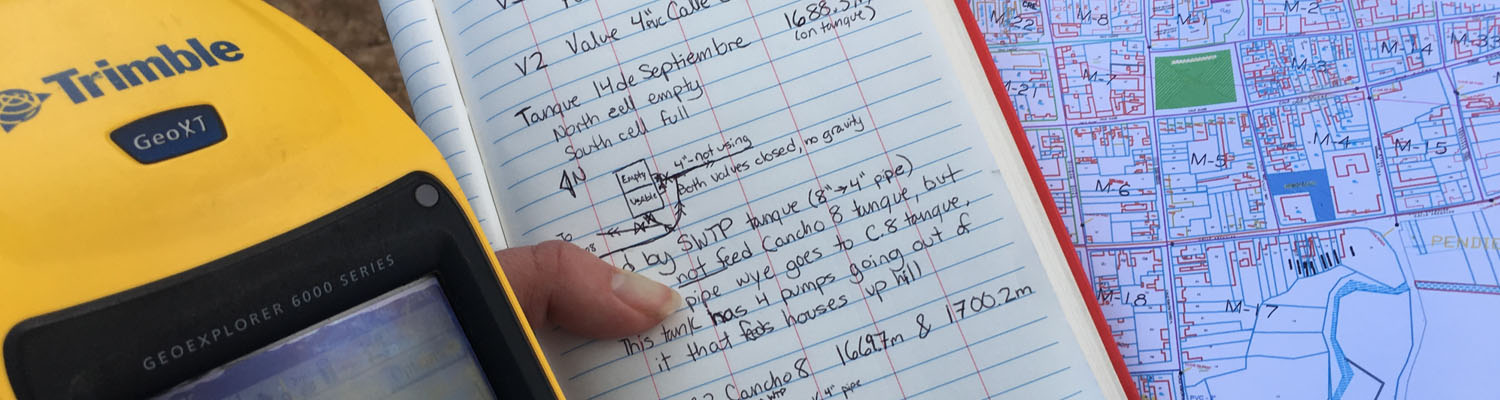 Trimble
GeoXT
GEOEXPLORER 6000 SERIES
V2 Value 4" PVC Calle
1688.5m
(on tanque)
Tanque 14 de Septiembre
North cell empty
South cell full
N
Empty
Usable
4"-not using
both valves closed, no gravity
To
d by SWTP tanque (8"→4" pipe)
not feed Cancho 8 tanque, but
pipe wye goes to C.8 tanque.
This tank has 4 pumps going out of
it that feeds houses up hill
Cancho 8 1669.7m & 1700.2m
4" pipe
M-22
M-8
M-1
M-2
M-21
M-7
M-3
M-14
M-33
M-6
M-5
M-4
M-15
M-18
M-17
PENDIE